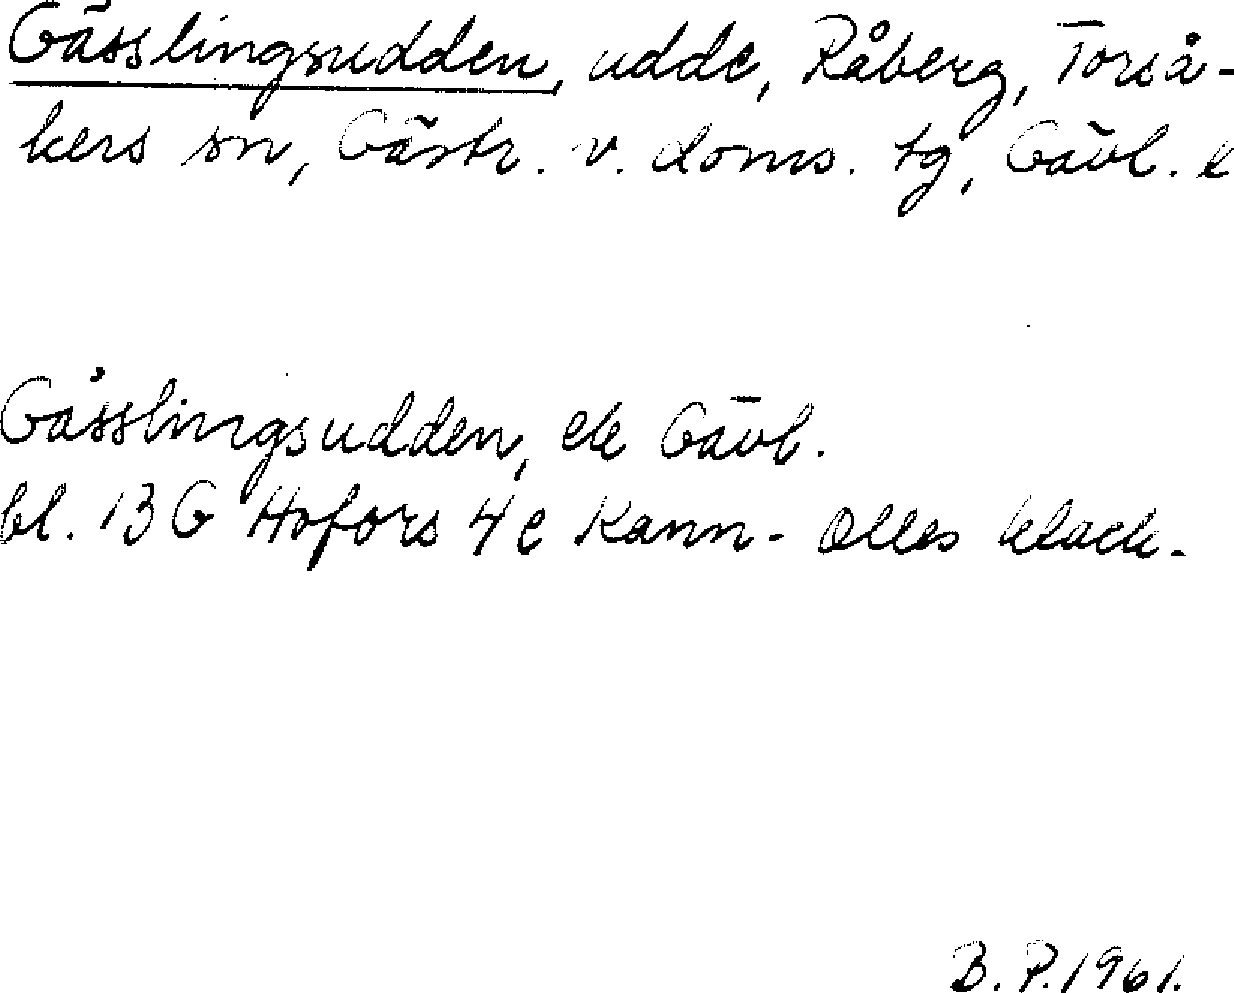 Gässlingsudden, udde, Råberg, Torså-
kers sn, Gästr. v. doms. tg, Gävl. l
Gåsslingsudden, ek Gävl.
bl. 13 G Hofors 4 e Kann- Olles klack.
B. P. 1961.